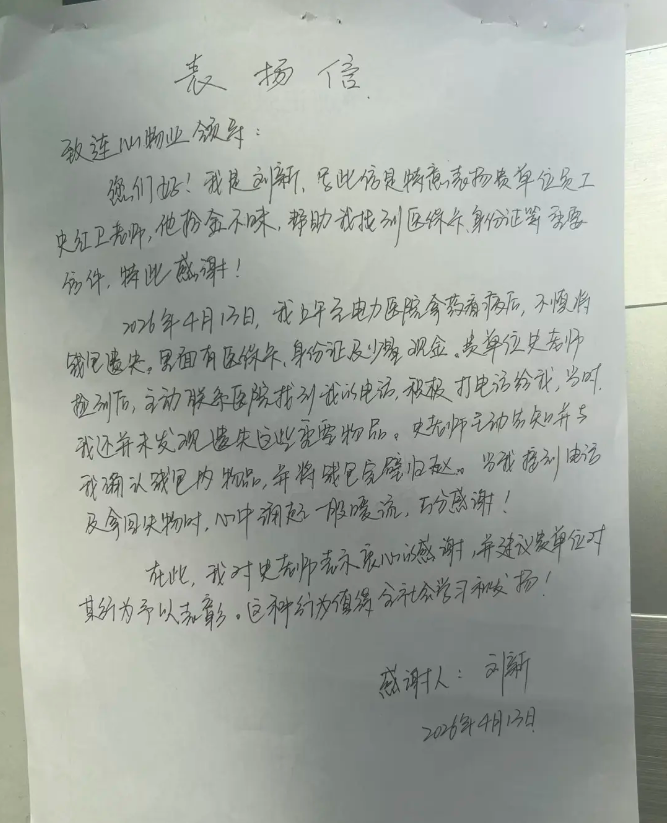 表扬信
致连山物业领导：
您们好！我是刘新，写此信是特意表扬贵单位员工
史红卫老师，他拾金不昧，帮助我找到医保卡、身份证等重要
信件，特此感谢！
2026年4月13日，我上午至电力医院拿药看病后，不慎将
钱包遗失。里面有医保卡、身份证及少量现金。贵单位史老师
捡到后，主动联系医院找到我的电话，积极打电话给我，当时
我还并未发现遗失这些重要物品。史老师主动告知并与
我确认钱包内物品，并将钱包完璧归赵。当我接到电话
及拿回失物时，心中涌起一股暖流，万分感谢！
在此，我对史老师表示衷心的感谢，并建议贵单位对
其行为予以嘉彰。这种行为值得全社会学习和发扬！
感谢人：刘新
2026年4月13日